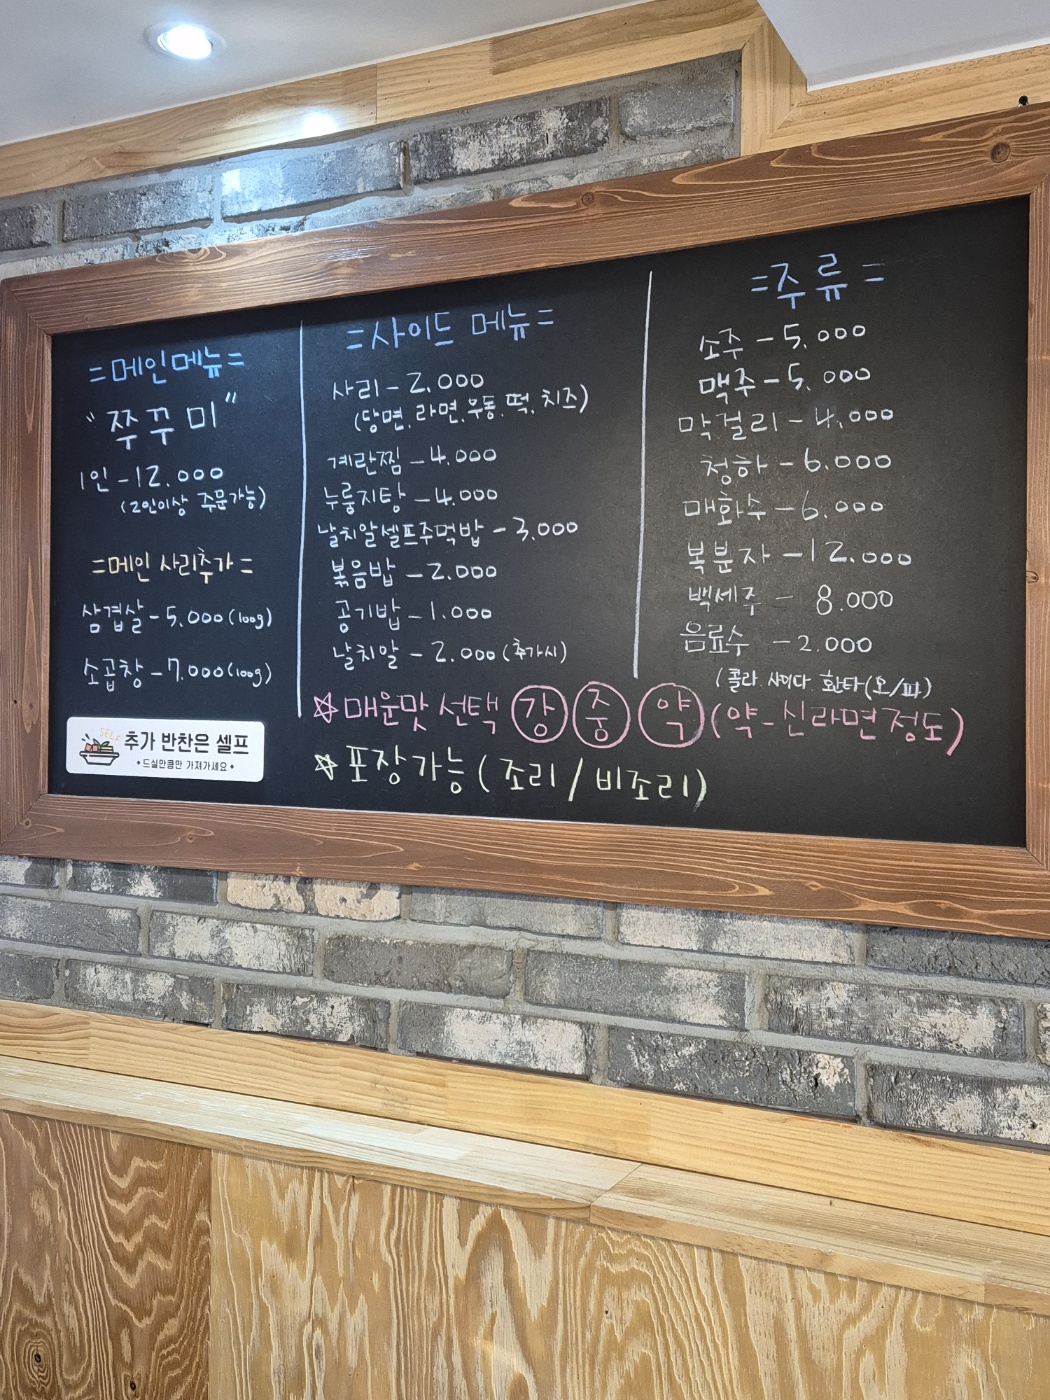 =메인메뉴=
"쭈꾸미"
1인-12.000
(2인이상 주문가능)
=메인 사리추가=
삼겹살-5.000(100g)
소곱창-7.000(100g)
SELF
추가 반찬은 셀프
•드실만큼만 가져가세요•
=사이드 메뉴=
사리-2.000
(당면.라면.우동.떡.치즈)
계란찜-4.000
누룽지탕-4.000
날치알셀프주먹밥-3.000
볶음밥-2.000
공기밥-1.000
날치알-2.000(추가시)
=주류=
소주-5.000
맥주-5.000
막걸리-4.000
청하-6.000
매화수-6.000
복분자-12.000
백세주-8.000
음료수-2.000
(콜라.사이다.환타(오/파)
☆매운맛 선택 강 중 약 (약-신라면정도)
☆포장가능(조리/비조리)